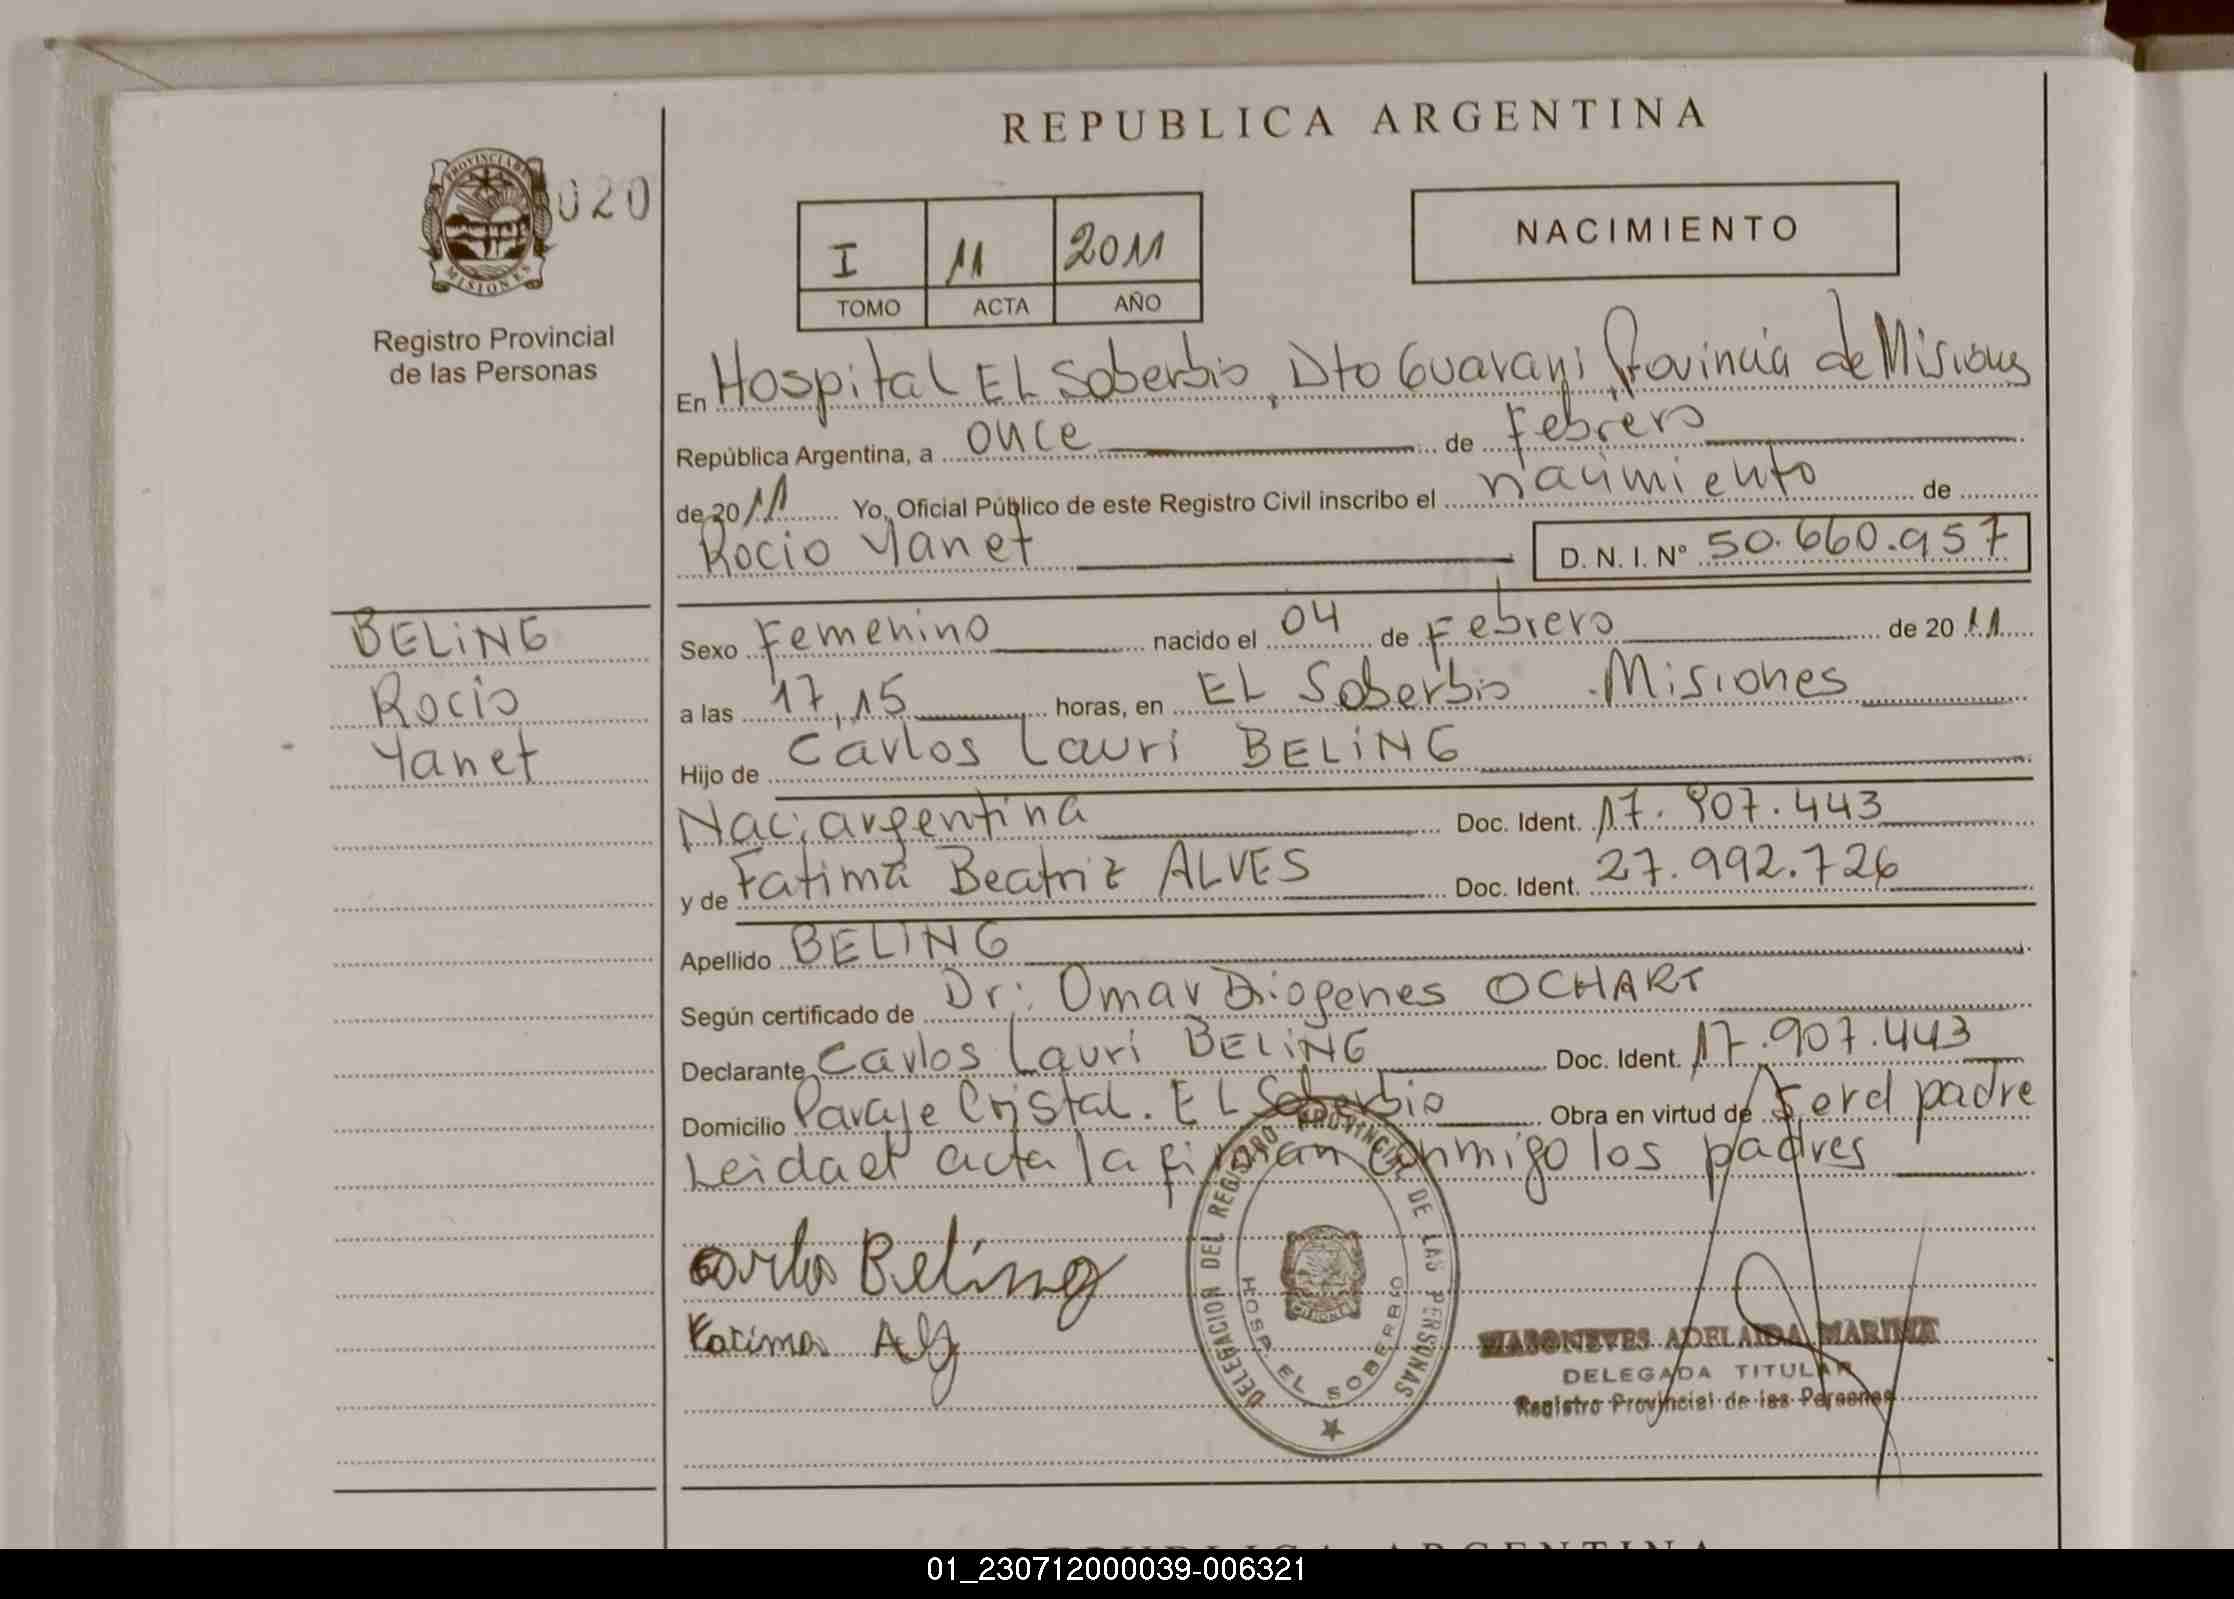 REPUBLICA ARGENTINA
PROVINCIA DE
MISIONES
020
Registro Provincial
de las Personas
I 11 2011
TOMO ACTA AÑO
NACIMIENTO
En Hospital EL Soberbio, Dto Guarani Provincia de Misiones
República Argentina, a once de Febrero
de 2011 Yo, Oficial Público de este Registro Civil inscribo el nacimiento de
Rocio Yanet D. N. I. N° 50.660.957
BELING
Rocio
Yanet
Sexo Femenino nacido el 04 de Febrero de 2011
a las 17,15 horas, en EL Soberbio . Misiones
Hijo de Carlos Lauri BELING
Nac: argentina Doc. Ident. 17.907.443
y de Fatima Beatriz ALVES Doc. Ident. 27.992.726
Apellido BELING
Según certificado de Dr: Omar Diogenes OCHART
Declarante Carlos Lauri BELING Doc. Ident. 17.907.443
Domicilio Paraje Cristal. EL Soberbio Obra en virtud de Ser el padre
Leida el acta la firman conmigo los padres
Carlos Beling
Fatima
DELEGACION DEL REGISTRO PROVINCIAL DE LAS PERSONAS
HOSP. EL SOBERBIO
MISIONES
ADELAIDA MARINA
DELEGADA TITULAR
Registro Provincial de las Personas
REPUBLICA ARGENTINA
01_230712000039-006321